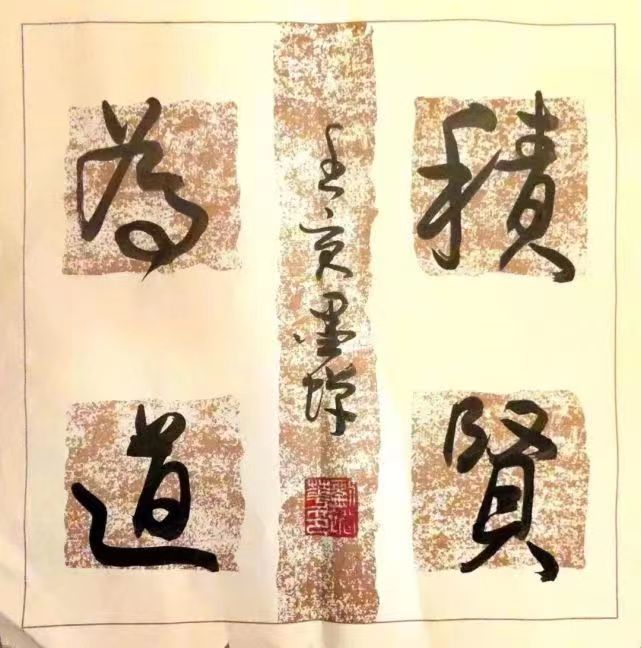 積賢
為道
壬寅墨